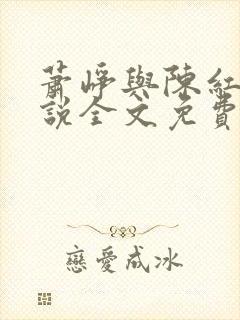 蕭崢與陳紅
說全文免費
戀愛成冰